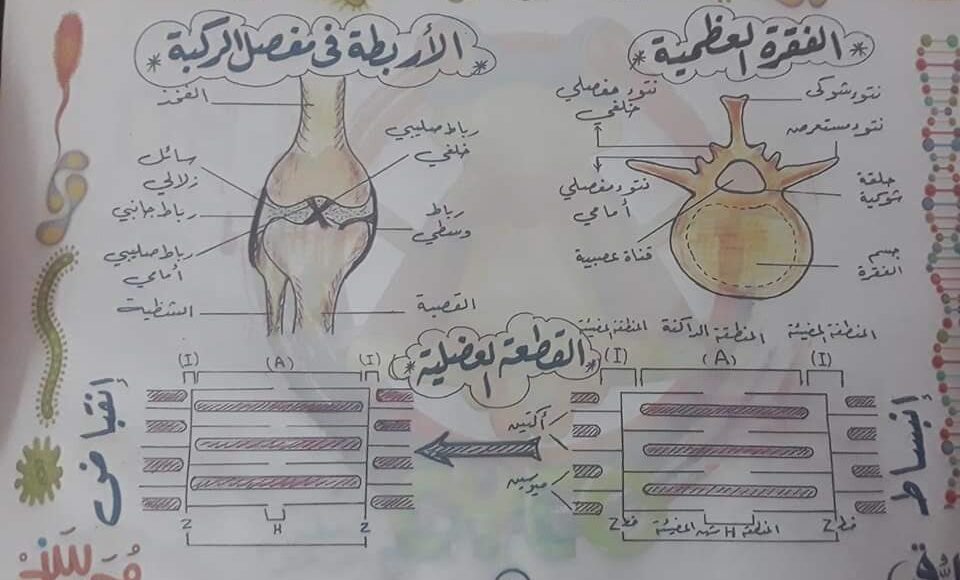 الفقرة العظمية
نتوء شوكى
نتوء مستعرض
حلقة
شوكية
جسم
الفقرة
نتوء مفصلي
خلفي
نتوء مفصلي
أمامي
قناة عصبية
الأربطة فى مفصل الركبة
الفخذ
سائل
زلالي
رباط جانبي
رباط صليبي
أمامي
الشظية
رباط صليبي
خلفي
رباط
وسطي
القصبة
القطعة العضلية
إنبساط
المنطقة المضيئة
(I)
المنطقة الداكنة
(A)
المنطقة المضيئة
(I)
أكتين
ميوسين
خط Z
المنطقة H شبه المضيئة
خط Z
إنقباض
(I)
(A)
(I)
Z
H
Z